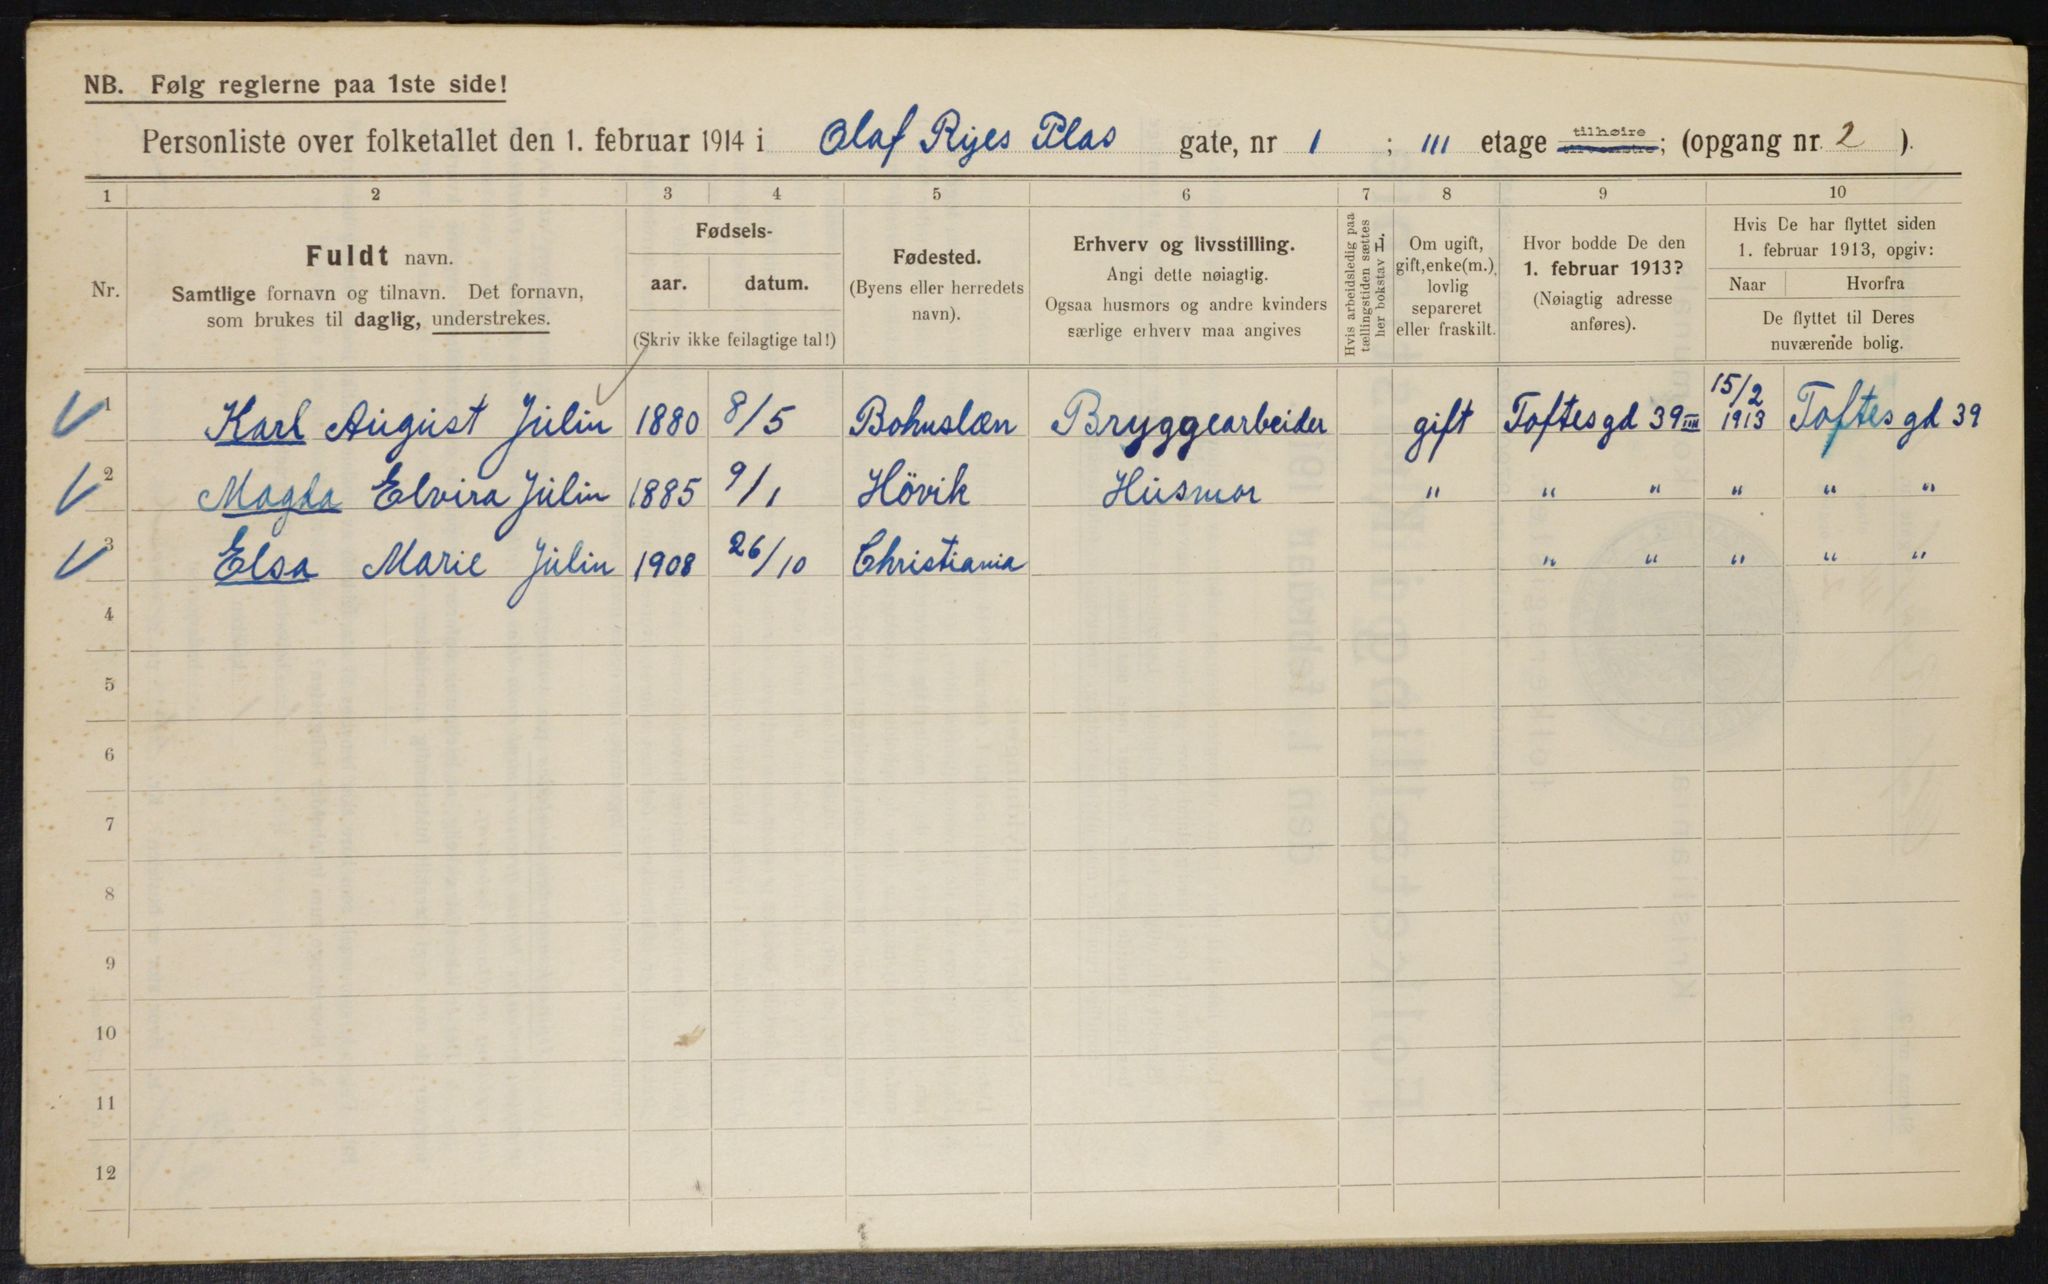 NB. Følg reglerne paa 1ste side!
Personliste over folketallet den 1. februar 1914 i Olaf Ryes Plas gate, nr 1 ; III etage tilhøire; (opgang nr. 2 ).
1 2 3 4 5 6 7 8 9 10
Nr.
Fuldt navn.
Samtlige fornavn og tilnavn. Det fornavn,
som brukes til daglig, understrekes.
Fødsels-
aar. datum.
(Skriv ikke feilagtige tal!)
Fødested.
(Byens eller herredets
navn).
Erhverv og livsstilling.
Angi dette nøiagtig.
Ogsaa husmors og andre kvinders
særlige erhverv maa angives
Hvis arbeidsledig paa
tællingstiden sættes
her bokstav L.
Om ugift,
gift, enke(m.),
lovlig
separeret
eller fraskilt.
Hvor bodde De den
1. februar 1913?
(Nøiagtig adresse
anføres).
Hvis De har flyttet siden
1. februar 1913, opgiv:
Naar Hvorfra
De flyttet til Deres
nuværende bolig.
1 Karl August Julin 1880 8/5 Bohuslæn Bryggearbeider gift Toftesgd 39 III 15/2 1913 Toftes gd 39
2 Magda Elvira Julin 1885 9/1 Hövik Husmor " " " " " "
3 Elsa Marie Julin 1908 26/10 Christiania " " " " "
4
5
6
7
8
9
10
11
12